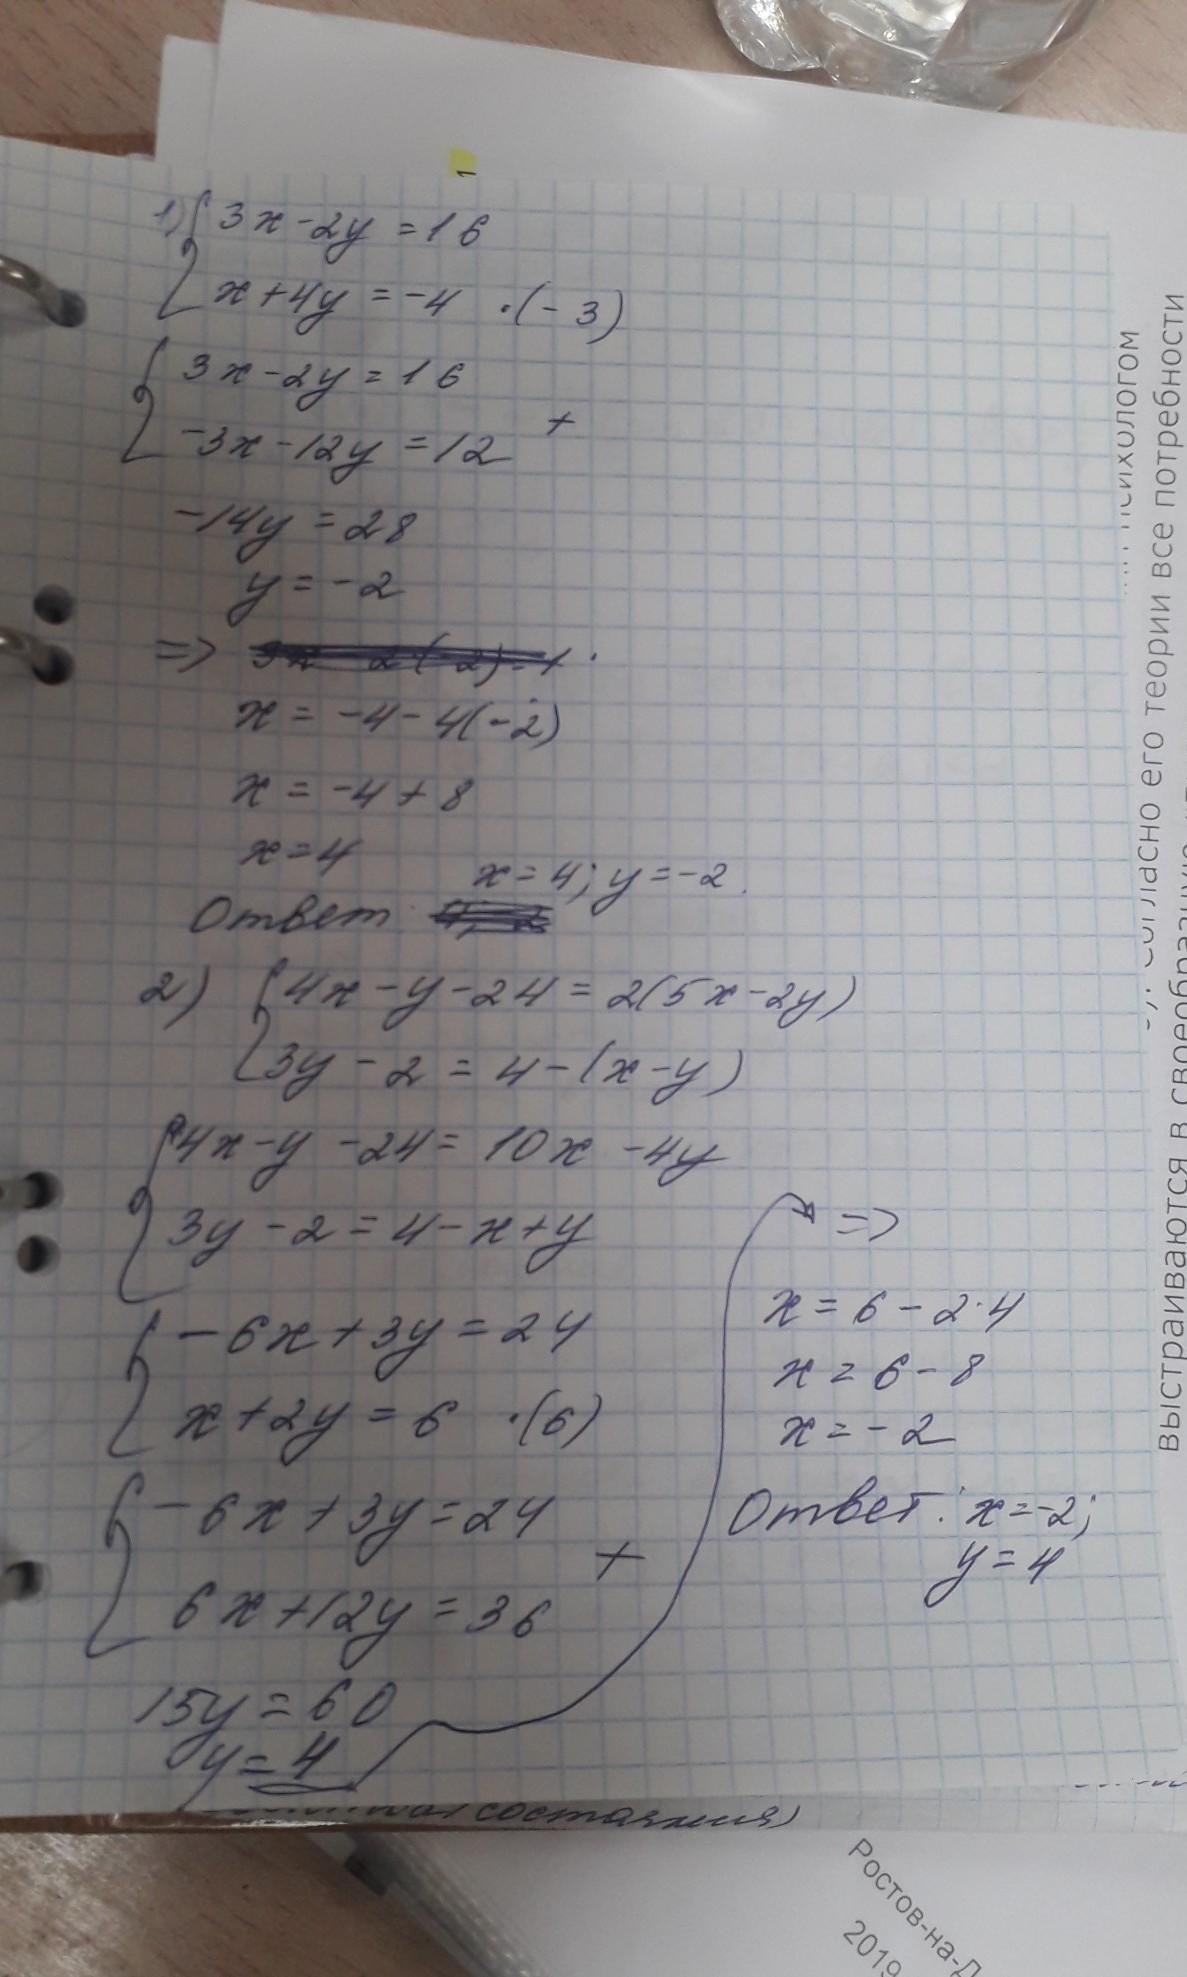 1
1) { 3x - 2y = 16
x + 4y = -4 ·(-3)
{ 3x - 2y = 16
-3x - 12y = 12 +
-14y = 28
y = -2
=>
x = -4 - 4(-2)
x = -4 + 8
x = 4
x = 4; y = -2.
Ответ:
2) { 4x - y - 24 = 2(5x - 2y)
3y - 2 = 4 - (x - y)
{ 4x - y - 24 = 10x - 4y
3y - 2 = 4 - x + y
{ -6x + 3y = 24
x + 2y = 6 ·(6)
{ -6x + 3y = 24
6x + 12y = 36 +
15y = 60
y = 4
=>
x = 6 - 2·4
x = 6 - 8
x = -2
Ответ: x = -2;
y = 4
состояния)
психологом
Согласно его теории все потребности
выстраиваются в своеобразную
Ростов-на-Д
2019